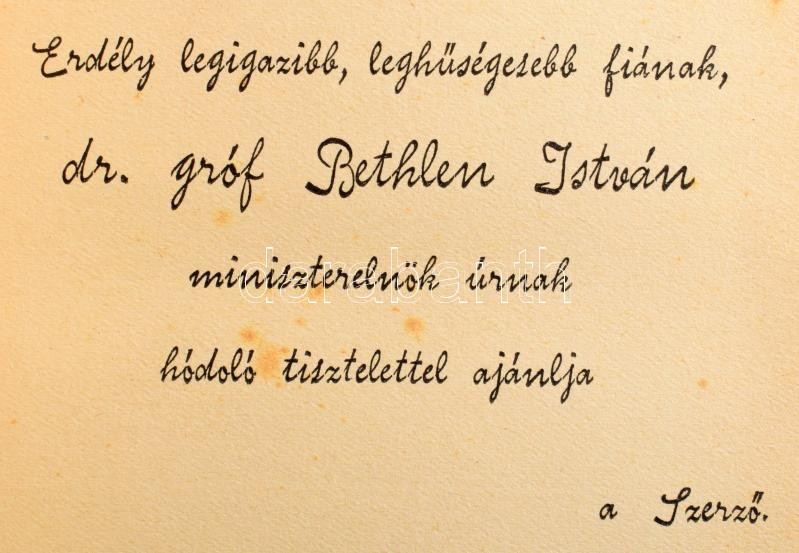 Erdély legigazibb, leghűségesebb fiának,
dr. gróf Bethlen István
miniszterelnök úrnak
darabanth
hódoló tisztelettel ajánlja
a Szerző.